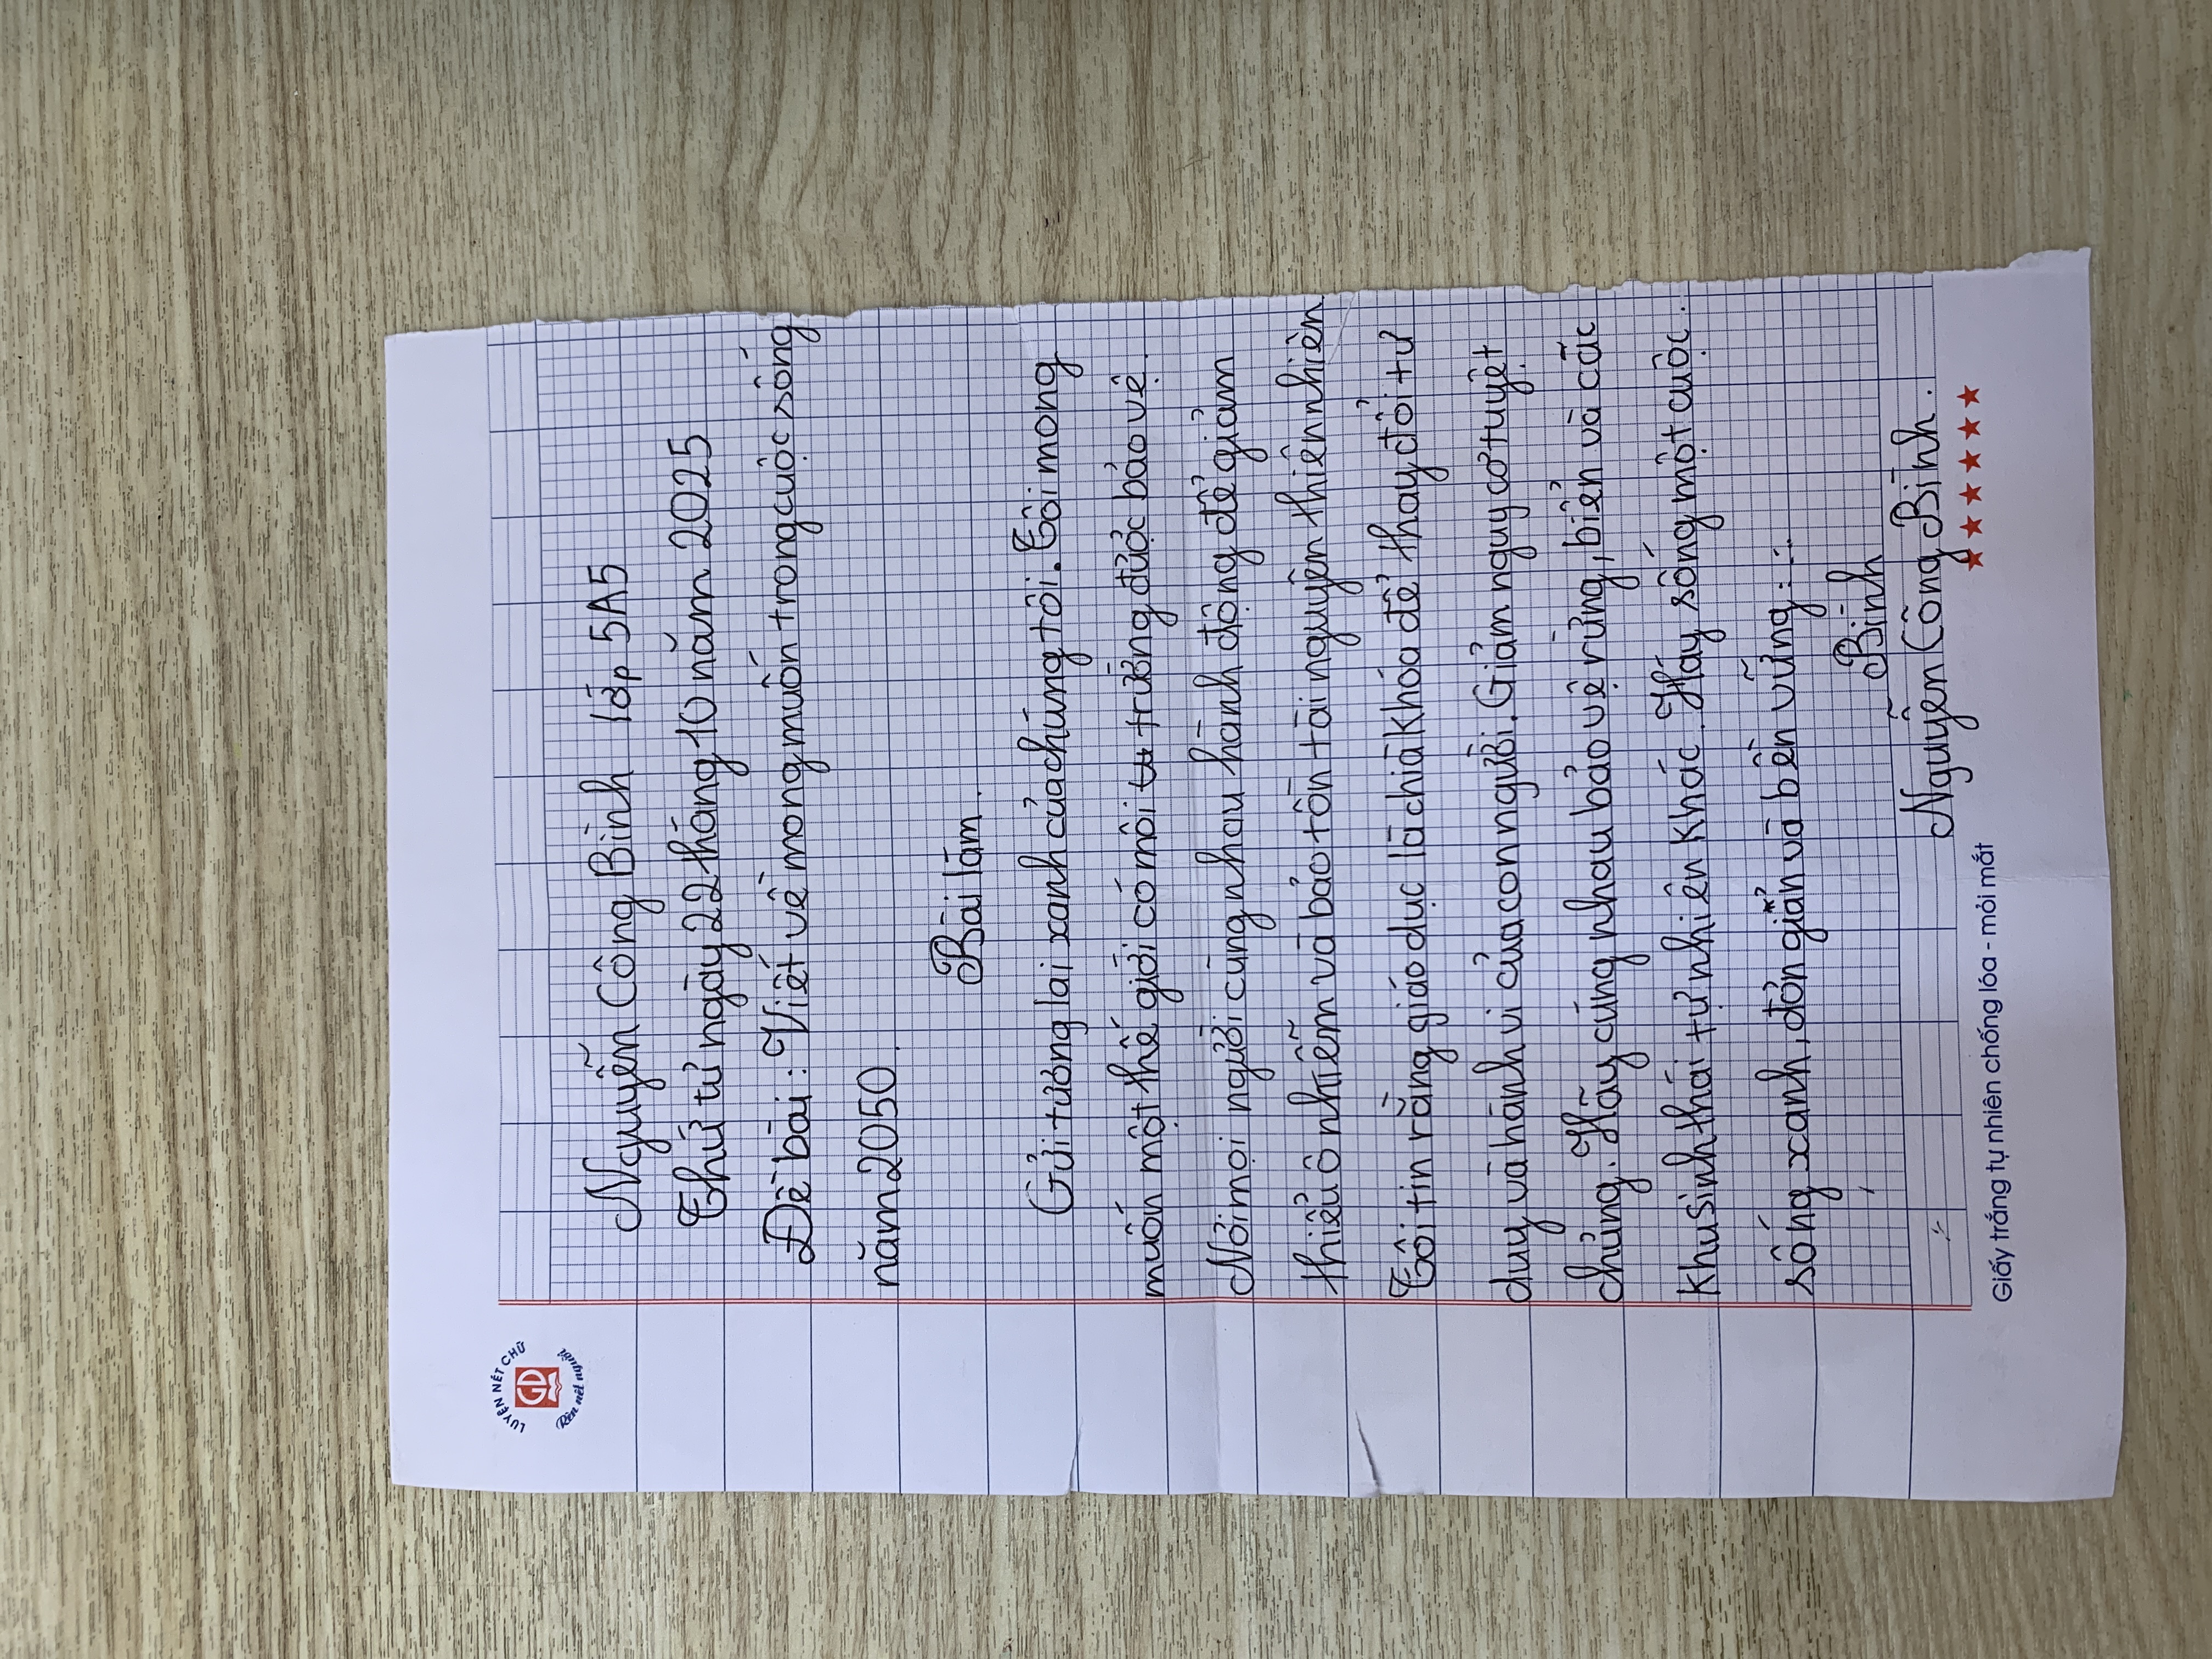 LUYỆN NÉT CHỮ
GD
Rèn nết người
Nguyễn Công Bình lớp 5A5
Thứ tư ngày 22 tháng 10 năm 2025
Đề bài: Viết về mong muốn trong cuộc sống
năm 2050.
Bài làm.
Gửi tương lai xanh của chúng tôi. Tôi mong
muốn một thế giới có môi trường được bảo vệ.
Nơi mọi người cùng nhau hành động để giảm
thiểu ô nhiễm và bảo tồn tài nguyên thiên nhiên
Tôi tin rằng giáo dục là chìa khóa để thay đổi tư
duy và hành vi của con người. Giảm nguy cơ tuyệt
chủng. Hãy cùng nhau bảo vệ rừng, biển và các
khu sinh thái tự nhiên khác. Hãy sống một cuộc
sống xanh, đơn giản và bền vững...
Bình
Nguyễn Công Bình.
Giấy trắng tự nhiên chống lóa - mỏi mắt